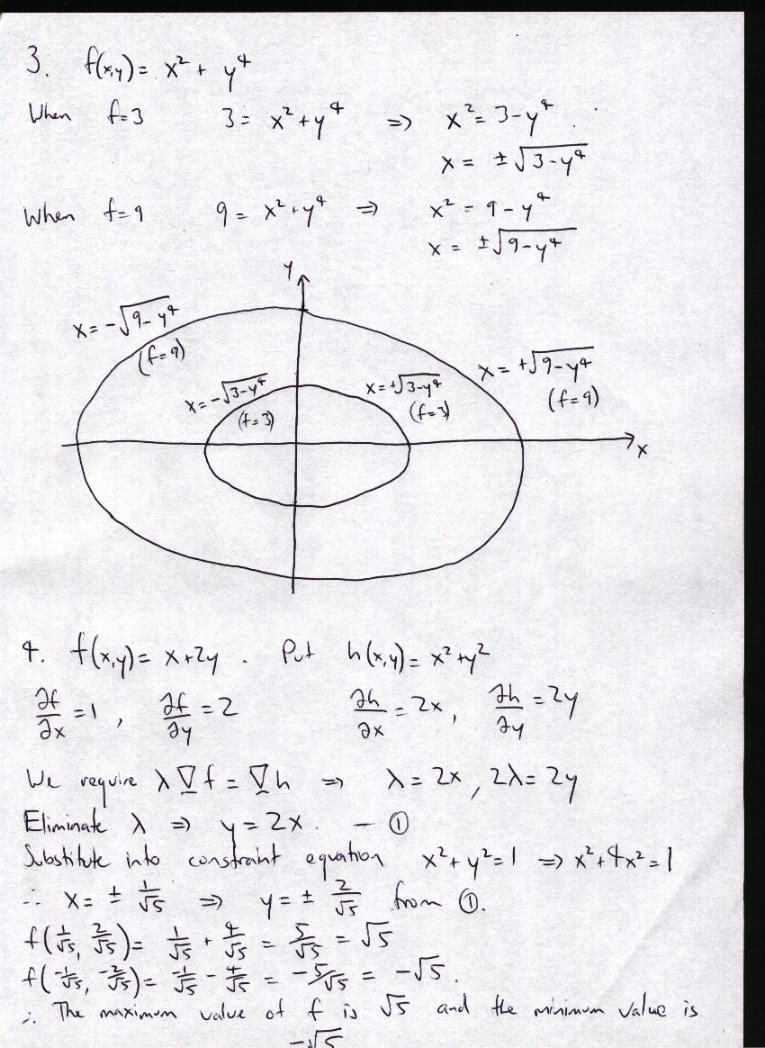 3. f(x,y) = x² + y⁴
When f=3 3 = x² + y⁴ ⇒ x² = 3-y⁴
x = ±√(3-y⁴)
When f=9 9 = x² + y⁴ ⇒ x² = 9-y⁴
x = ±√(9-y⁴)
y
x = -√(9-y⁴)
(f=9)
x = +√(9-y⁴)
(f=9)
x = -√(3-y⁴)
(f=3)
x = +√(3-y⁴)
(f=3)
x
4. f(x,y) = x+2y . Put h(x,y) = x²+y²
∂f/∂x = 1 , ∂f/∂y = 2 ∂h/∂x = 2x , ∂h/∂y = 2y
We require λ∇f = ∇h ⇒ λ = 2x , 2λ = 2y
Eliminate λ ⇒ y = 2x. — ①
Substitute into constraint equation x²+y²=1 ⇒ x²+4x²=1
∴ x = ± 1/√5 ⇒ y = ± 2/√5 from ①.
f(1/√5, 2/√5) = 1/√5 + 4/√5 = 5/√5 = √5
f(-1/√5, -2/√5) = -1/√5 - 4/√5 = -5/√5 = -√5.
∴ The maximum value of f is √5 and the minimum value is
-√5